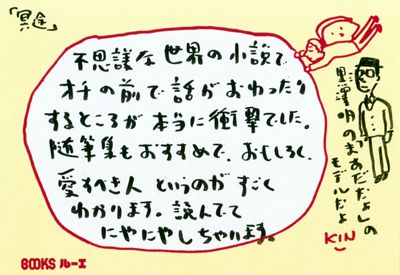 「冥途」
不思議な世界の小説で
オチの前で話がおわったり
するところが本当に衝撃でした。
随筆集もおすすめで、おもしろく、
愛すべき人というのがすごく
わかります。読んでて
にやにやしちゃいます。
黒澤明の「まあだだよ」の
モデルだよ
KIN
BOOKS ルーエ